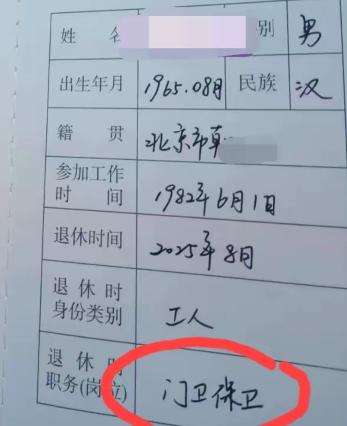 姓 名 别 男
出生年月 1965.08月 民族 汉
籍 贯 北京市
参加工作
时 间 1982年6月1日
退休时间 2025年8月
退 休 时
身份类别 工人
退 休 时
职务(岗位) 门卫保卫